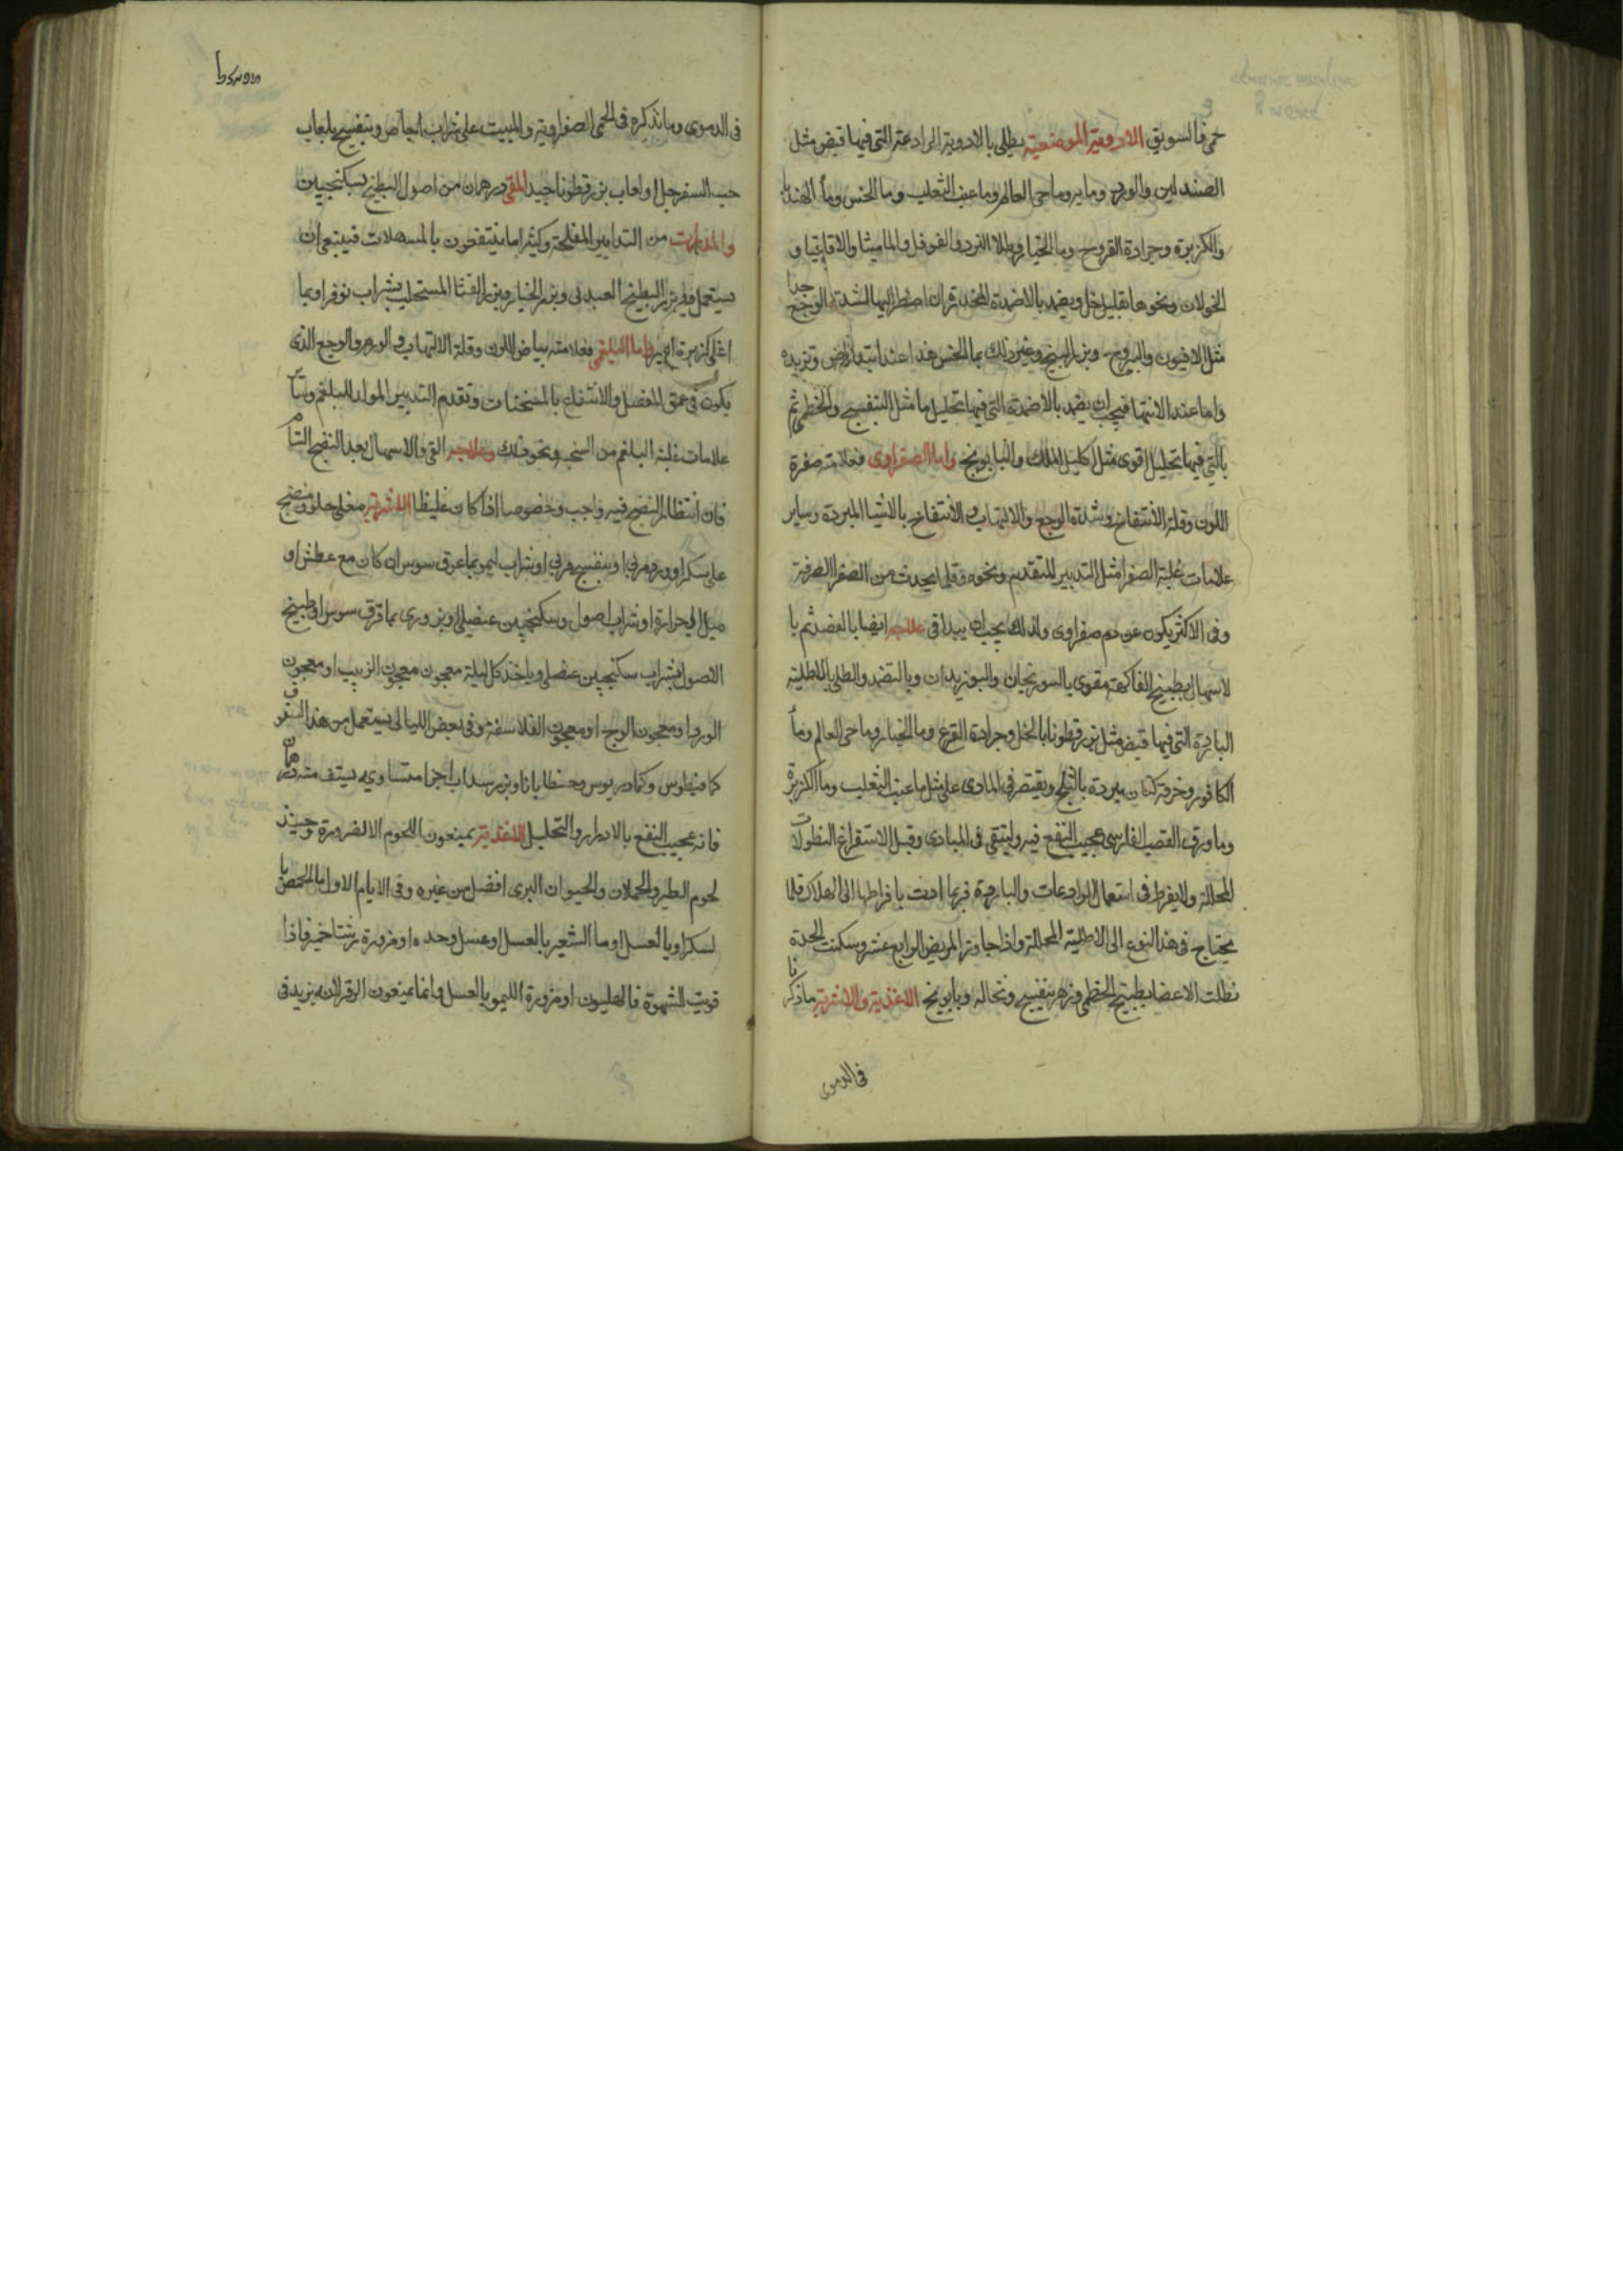 خمر فالسويق الادوية الموضعية يطلى بالادوية الرادعة التى فيها قبض مثل
الصندلين والورد وماميرو وماحى العالم وما عنب الثعلب وما الخس وماء الهندبا
والكزبرة وجرادة القروح وما الخيار وطلا النرد والفوفل والماميثا والاقاقيا و
الخولان ونحوها بقليل خل ويضمد بالاضمدة المخدرة ان اضطر اليها لشدة الوجع جدا
مثل الافيون واليبروح وبزر البنج وغير ذلك بما الخس هذا عند ابتدا المرض وتزيده
واما عند الانتها فيجب ان يضمد بالاضمدة التى فيها تحليل ما مثل البنفسج والخطمى ثم
بالتى فيها تحليل اقوى مثل اكليل الملك والبابونج واما الصفراوى فعلامته صفرة
اللون وقلة الانتفاخ وشدة الوجع والالتهاب والانتفاع بالاشيا المبردة وساير
علامات غلبة الصفرا مثل التدبير المتقدم ونحوه وقلما يحدث من الصفرا الصرفة
وفى الاكثر يكون عن دم صفراوى ولذلك يجب ان يبدا فى علاجه ايضا بالفصد ثم با
لاسهال بطبيخ الفاكهة مقوى بالسورنجان والبوزيدان وبالتضمد والطلى بالاطلية
الباردة التى فيها قبض مثل بزرقطونا بالخل وجرادة القرع وما الخيار وماحى العالم وماء
الكافور وخرقة كتان مبردة بالثلج ويقتصر فى المبادى على مثل ما عنب الثعلب وما الكزبرة
وما ورق القصب الفارسى عجيب النفع فيه وليتقى فى المبادى وقبل الاستفراغ النطولات
المحللة ولايفرط فى استعمال الرادعات والباردة فربما ادت بافراطها الى الهلاك قلما
يحتاج فى هذا النوع الى الاطلية المحللة واذا جاوز المريض الرابع عشر وسكنت الحدة
نطلت الاعضا بطبيخ الخطمى وزهر بنفسج ونخاله وبابونج الاغذية والاشربة ماذكرنا
فى الدموى
فى الدموى وما نذكره فى الحمى الصفراوية والمبيت على شراب اجاص وبنفسج بلعاب
حب السفرجل او لعاب بزرقطونا جيد المقى درهمان من اصول البطيخ بسكنجبين
والمدرات من التدابير المفلحة وكثيرا ما ينتفعون بالمسهلات فينبغى ان
يستعمل فيه بزر البطيخ العبدلى وبزر الخيار وبزر القثا المستحلب بشراب نوفر او بما
اغلى كزبرة واما البلغمى فعلامته بياض اللون وقلة الالتهاب فى الورم والوجع الذى
يكون فى عمق المفصل والانتفاع بالمسخنات وتقدم التدبير المولد للبلغم وساير
علامات غلبة البلغم من السحنه ونحو ذلك وعلاجه القى والاسهال بعد النضج التام
فان انتظار النضج فيه واجب وخصوصا اذا كان غليظا الاشربة مغلى حلو ومنضج
على سكر او ورد مربى او بنفسج مربى او شراب ليمو بما عرق سوس ان كان مع عطش او
ميل الى حرارة او شراب اصول وسكنجبين عنصلى او بزورى بما عرق سوس او طبيخ
الاصول بشراب سكنجبين عنصلى وياخذ كل ليلة معجون معجون الزبيب او معجون
الورد او معجون الوج او معجون الفلاسفة وفى بعض الليالى يستعمل من هذا السفوف
كمافيطوس وكمادريوس وجنطيانا وبزر سداب اجزا متساوية يستف منه درهمان
فانه عجيب النفع بالادرار والتحليل الاغذية يمنعون اللحوم الا لضرورة وحينئذ
لحوم الطير والحملان والحيوان البرى افضل من غيره وفى الايام الاول ما الحمص با
لسكر او بالعسل او ما الشعير بالعسل او عسل وحده او مزورة رشتا خمير فاذا
قويت الشهوة فالهليون او مزورة الليمو بالعسل وانما يمنعون المرق لانه يزيد فى